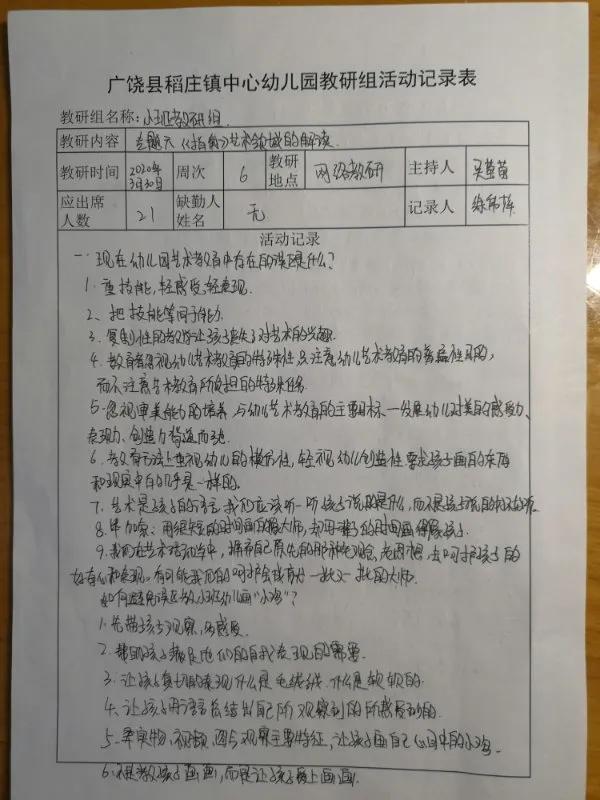 广饶县稻庄镇中心幼儿园教研组活动记录表
教研组名称：小班教研组.
教研内容 专题六《指南》艺术领域的解读.
教研时间 2020年3月30日 周次 6 教研地点 网络教研 主持人 吴
应出席人数 21 缺勤人姓名 无 记录人 徐
活动记录
一. 现在幼儿园艺术教育中存在的误区是什么？
1. 重技能，轻感受，轻表现.
2、把技能等同于能力.
3. 复制性的教学让孩子丧失了对艺术的兴趣.
4. 教育者忽视幼儿艺术教育的特殊性，只注意幼儿艺术教育的普遍性目的，
而不注意艺术教育所负担的特殊任务
5. 忽视审美能力的培养，与幼儿艺术教育的主要目标一发展幼儿对美的感受力、
表现力、创造力背道而驰.
6. 教育方法上重视幼儿的模仿性，轻视幼儿创造性，要求孩子画的东西
和现实中的几乎是一样的.
7. 艺术是孩子的语言，我们应该听一听孩子说的是什么，而不是孩子说的
8. 毕加索：用很短的时间画的像大师，却用一辈子的时间画得像孩子.
9. 我们在艺术活动当中，摒弃自己原先的那种观念，去呵护孩子的
好奇心和表现。有可能我们的呵护会成就一批又一批的大师.
如何避免误区教小班幼儿画“小鸡”？
1. 先带孩子观察，后感受.
2. 帮助孩子满足他们的自我表现的需要.
3. 让孩子真切的表现什么是毛绒绒，什么是软软的.
4、让孩子用语言总结出自己所观察到的所感受到的.
5. 拿实物、视频、图片观察主要特征，让孩子画自己心目中的小鸡.
6. 不是教孩子画画，而是让孩子爱上画画.